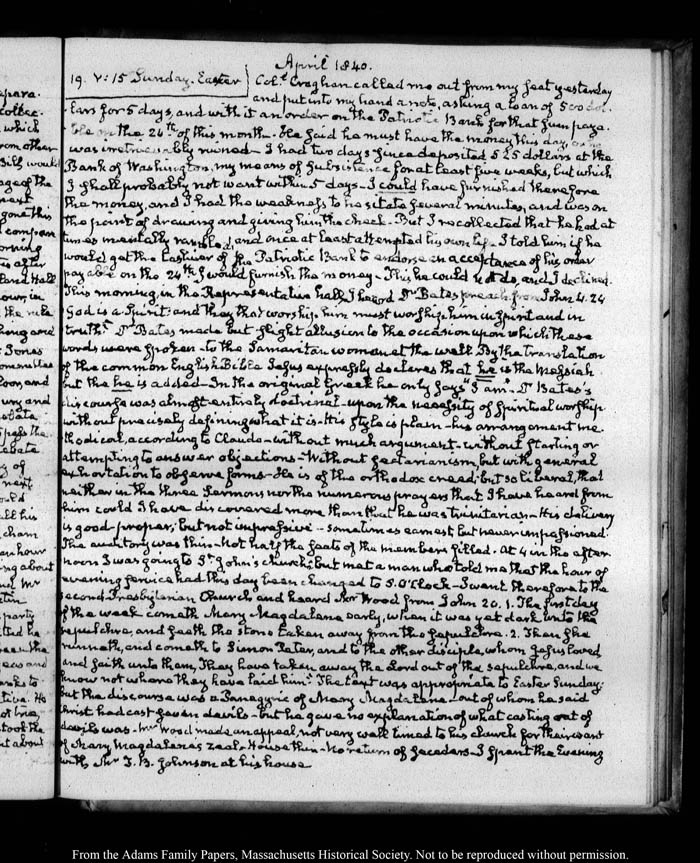 April 1840.
19. V:15 Sunday. Easter
Col.t Croghan called me out from my seat yesterday
and put into my hand a note, asking a loan of 500 dol-
lars for 5 days, and with it an order on the Patriotic Bank for that sum paya-
ble on the 24.th of this month - He said he must have the money this day, or he
was irretrievably ruined - I had two days since deposited 525 dollars at the
Bank of Washington, my means of subsistence for at least five weeks, but which
I shall probably not want within 5 days - I could have furnished therefore
the money, and I had the weakness to hesitate several minutes, and was on
the point of drawing and giving him the check - But I recollected that he had at
times mentally rambled, and once at least attempted his own life. I told him if he
would get the Cashier of the Patriotic Bank to endorse an acceptance of his order
payable on the 24.th I would furnish the money - This he could not do, and I declined.
This morning, in the Representative hall, I heard Mr Bates preach from John 4.24
God is a Spirit: and they that worship him must worship him in Spirit and in
truth. Mr Bates made but slight allusion to the occasion upon which these
words were spoken - to the Samaritan woman at the well By the translation
of the common English Bible Jesus expressly declares that he is the Messiah
but the he is added - In the original Greek he only says "I am". Mr Bates's
discourse was almost entirely doctrinal - upon the necessity of spiritual worship
without precisely defining what it is - His style is plain - his arrangement me-
thodical, according to Claude - without much argument - without starting or
attempting to answer objections - Without sectarianism, but with general
exhortation to observe forms - He is of the orthodox creed; but so liberal, that
neither in the three Sermons nor the numerous prayers that I have heard from
him could I have discovered more than that he was trinitarian - His delivery
is good - proper; but not impressive - sometimes earnest but never impassioned.
The auditory was thin - Not half the seats of the members filled. At 4 in the after-
noon I was going to St. John's church; but met a man who told me that the hour of
evening service had this day been changed to 5. O'Clock - I went therefore to the
second Presbyterian Church and heard Mr Wood from John 20.1. The first day
of the week cometh Mary Magdalene early, when it was yet dark unto the
sepulchre, and seeth the stone taken away from the sepulchre. 2. Then she
runneth, and cometh to Simon Peter, and to the other disciple, whom Jesus loved
and saith unto them, They have taken away the Lord out of the sepulchre, and we
know not where they have laid him. The text was appropriate to Easter Sunday;
but the discourse was a Panegyric of Mary Magdalene - out of whom he said
Christ had cast seven devils - but he gave no explanation of what casting out of
devils was - Mr Wood made an appeal, not very well timed to his church for their want
of Mary Magdalene's zeal - House thin - No return of seceders - I spent the Evening
with Mr J. B. Johnson at his house
From the Adams Family Papers, Massachusetts Historical Society. Not to be reproduced without permission.